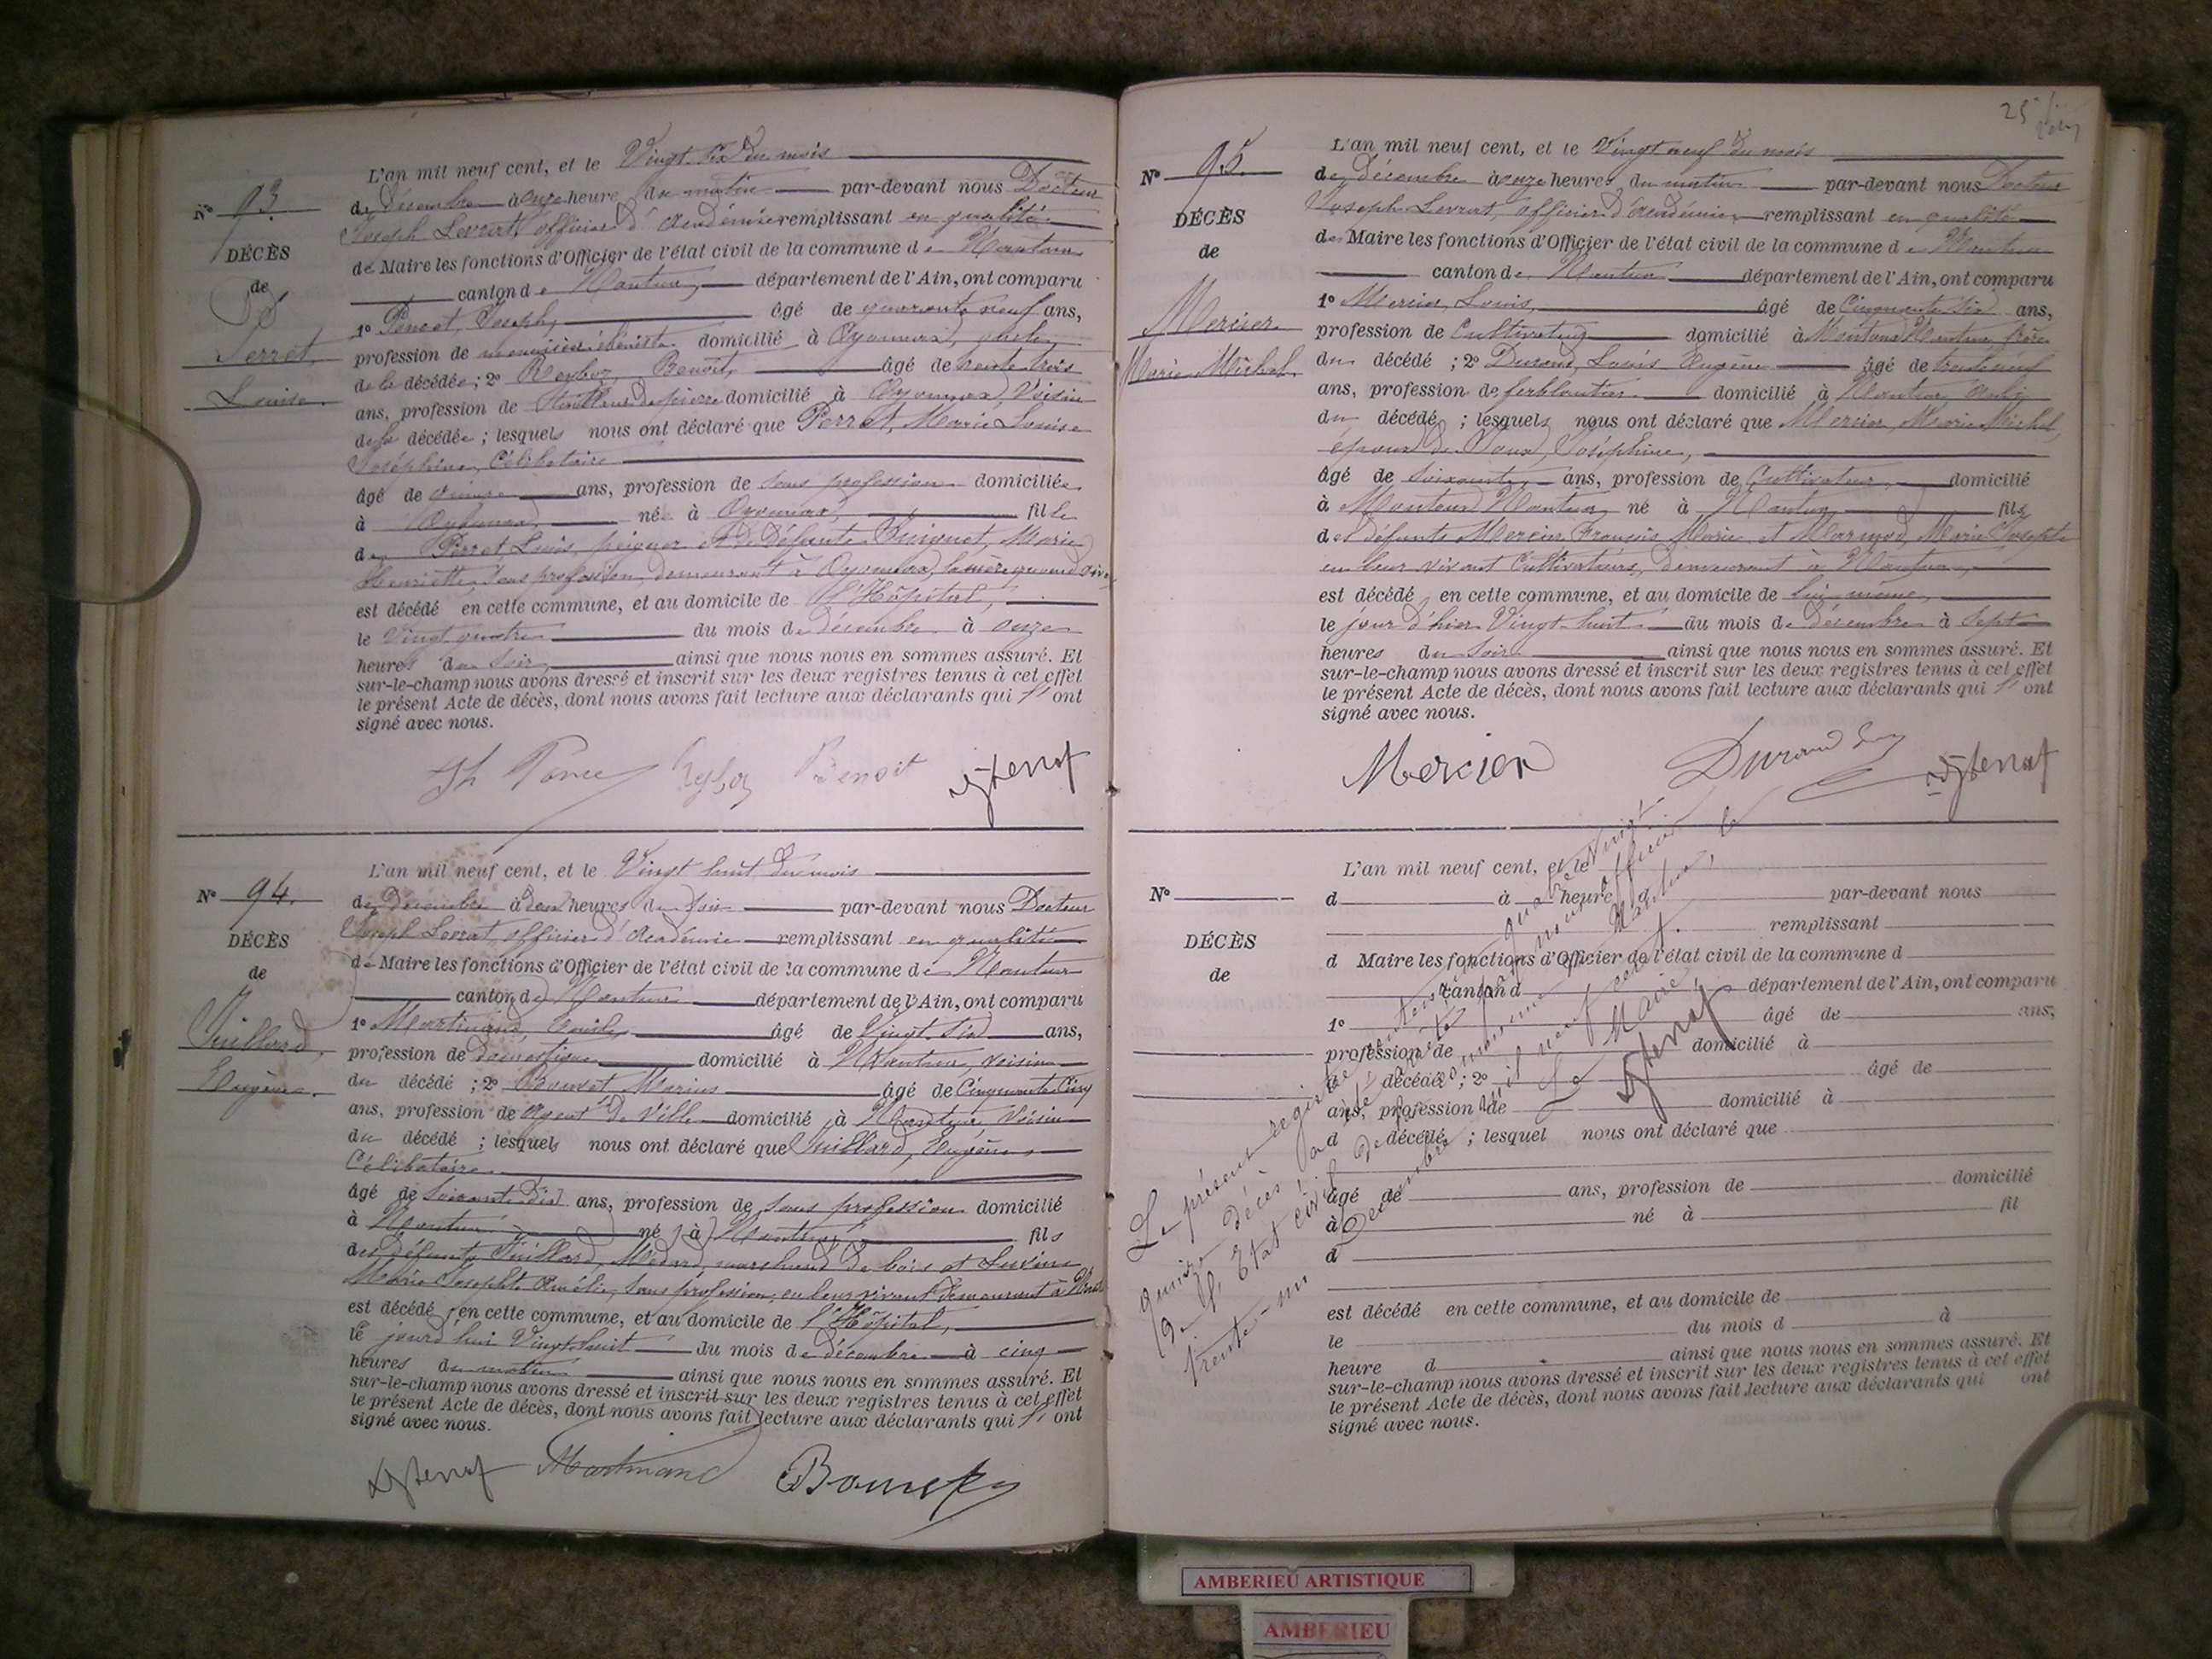 N° 93.
DÉCÈS
de
Perret
Louise
L'an mil neuf cent, et le Vingt six du mois
de Décembre à onze heure du matin par-devant nous Docteur
Joseph Levrat, officier d'Académie remplissant en qualité
de Maire les fonctions d'Officier de l'état civil de la commune de Nantua
canton de Nantua, département de l'Ain, ont comparu
1° Poncet, Joseph, âgé de quarante neuf ans,
profession de menuisier ébéniste domicilié à Oyonnax, oncle
de la décédée; 2° Reyboz, Benoît, âgé de trente trois
ans, profession de tailleur de pierre domicilié à Oyonnax, Voisin
de la décédée; lesquels nous ont déclaré que Perret, Marie Louise
Joséphine, Célibataire
âgé de ans, profession de sans profession domiciliée
à Oyonnax, née à Oyonnax, fille
de Perret, Louis, peigneur et de Défunte Marie
Henriette, sans profession, demeurant à Oyonnax, la mère quand vivait
est décédé en cette commune, et au domicile de l'Hôpital,
le Vingt quatre du mois de décembre à onze
heures du Soir, ainsi que nous nous en sommes assuré. Et
sur-le-champ nous avons dressé et inscrit sur les deux registres tenus à cet effet
le présent Acte de décès, dont nous avons fait lecture aux déclarants qui l' ont
signé avec nous.
Jh Poncet Reyboz Benoit
N° 94.
DÉCÈS
de
Juillard,
Eugène.
L'an mil neuf cent, et le Vingt huit du mois
de Décembre à deux heures du soir par-devant nous Docteur
Joseph Levrat, officier d'Académie remplissant en qualité
de Maire les fonctions d'Officier de l'état civil de la commune de Nantua
canton de Nantua département de l'Ain, ont comparu
1° Martinand, Emile, âgé de Vingt six ans,
profession de domestique domicilié à Nantua, voisin
du décédé; 2° Marius âgé de Cinquante Cinq
ans, profession de Agent de Ville domicilié à Nantua, Voisin
du décédé; lesquels nous ont déclaré que Juillard, Eugène,
Célibataire
âgé de Soixante Dix ans, profession de sans profession domicilié
à Nantua né à Nantua fils
des défunts Juillard, Médard, marchand de bois et
Marie Josephte Amélie, sans profession, en leur vivant demeurant à
est décédé en cette commune, et au domicile de l'Hôpital,
le jourd'hui Vingt huit du mois de décembre à cinq
heures du matin ainsi que nous nous en sommes assuré. Et
sur-le-champ nous avons dressé et inscrit sur les deux registres tenus à cet effet
le présent Acte de décès, dont nous avons fait lecture aux déclarants qui l' ont
signé avec nous.
Martinand
25
N° 95.
DÉCÈS
de
Mercier
Marie Michel.
L'an mil neuf cent, et le Vingt neuf du mois
de décembre à onze heures du matin par-devant nous Docteur
Joseph Levrat, officier d'Académie remplissant en qualité
de Maire les fonctions d'Officier de l'état civil de la commune de Nantua
canton de Nantua département de l'Ain, ont comparu
1° Mercier, Louis, âgé de Cinquante Six ans,
profession de Cultivateur domicilié à Nantua frère
du décédé; 2° Durand, Louis Eugène âgé de trente neuf
ans, profession de ferblantier domicilié à Nantua, ami
du décédé; lesquels nous ont déclaré que Mercier, Marie Michel,
époux de Joséphine,
âgé de Soixante ans, profession de Cultivateur domicilié
à Nantua né à Nantua fils
des défunts Mercier François Marie et Marmod, Marie Josephte
en leur vivant Cultivateurs, demeurant à Nantua,
est décédé en cette commune, et au domicile de lui-même,
le jour d'hier Vingt-huit du mois de décembre à Sept
heures du Soir ainsi que nous nous en sommes assuré. Et
sur-le-champ nous avons dressé et inscrit sur les deux registres tenus à cet effet
le présent Acte de décès, dont nous avons fait lecture aux déclarants qui l' ont
signé avec nous.
Mercier Durand
N°
DÉCÈS
de
L'an mil neuf cent, et le
d à heure d par-devant nous
remplissant
d Maire les fonctions d'Officier de l'état civil de la commune d
canton d département de l'Ain, ont comparu
1° âgé de ans,
profession de domicilié à
d décédé; 2° âgé de
ans, profession de domicilié à
d décédé; lesquel nous ont déclaré que
âgé de ans, profession de domicilié
à né à fil
d
est décédé en cette commune, et au domicile de
le du mois d à
heure d ainsi que nous nous en sommes assuré. Et
sur-le-champ nous avons dressé et inscrit sur les deux registres tenus à cet effet
le présent Acte de décès, dont nous avons fait lecture aux déclarants qui ont
signé avec nous.
Le présent registre contenant quatre Vingt
quinze décès a été par nous officier
de l'Etat civil de la commune Nantua, le
trente-un Décembre mil neuf cent.
Le Maire,
AMBERIEU ARTISTIQUE
AMBERIEU